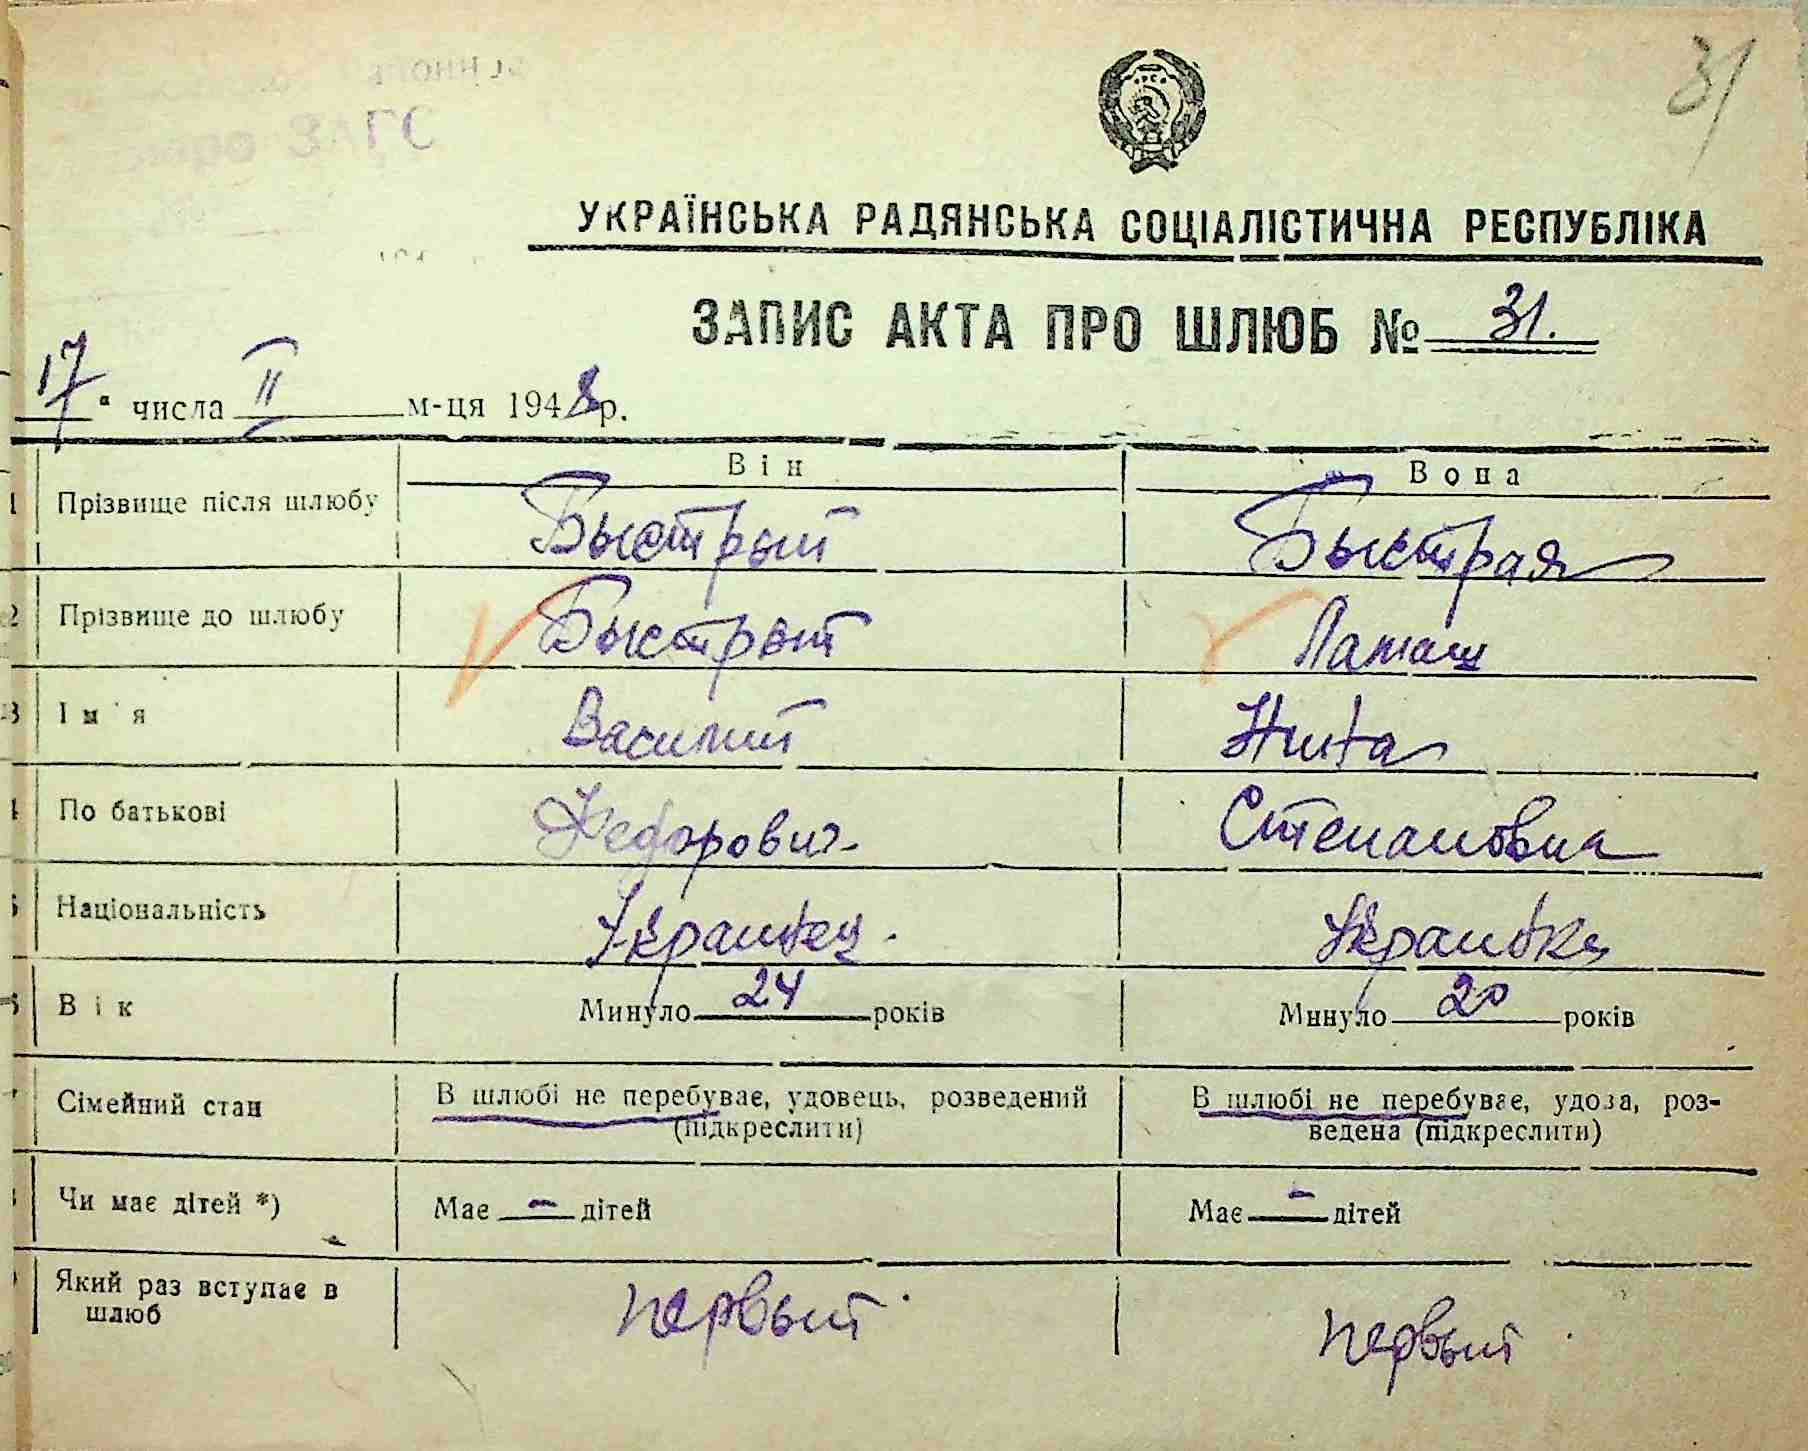 31
бюро ЗАГС
УКРАЇНСЬКА РАДЯНСЬКА СОЦІАЛІСТИЧНА РЕСПУБЛІКА
ЗАПИС АКТА ПРО ШЛЮБ № 31.
17 " числа II м-ця 1948 р.
Він Вона
1 Прізвище після шлюбу Быстрый Быстрая
2 Прізвище до шлюбу Быстрый
3 Ім'я Василий Нина
4 По батькові Федорович Степановна
5 Національність Украинец. Украинка
6 Вік Минуло 24 років Минуло 20 років
7 Сімейний стан В шлюбі не перебуває, удовець, розведений В шлюбі не перебуває, удова, роз-
(підкреслити) ведена (підкреслити)
Чи має дітей *) Має - дітей Має - дітей
Який раз вступає в первый. первый.
шлюб